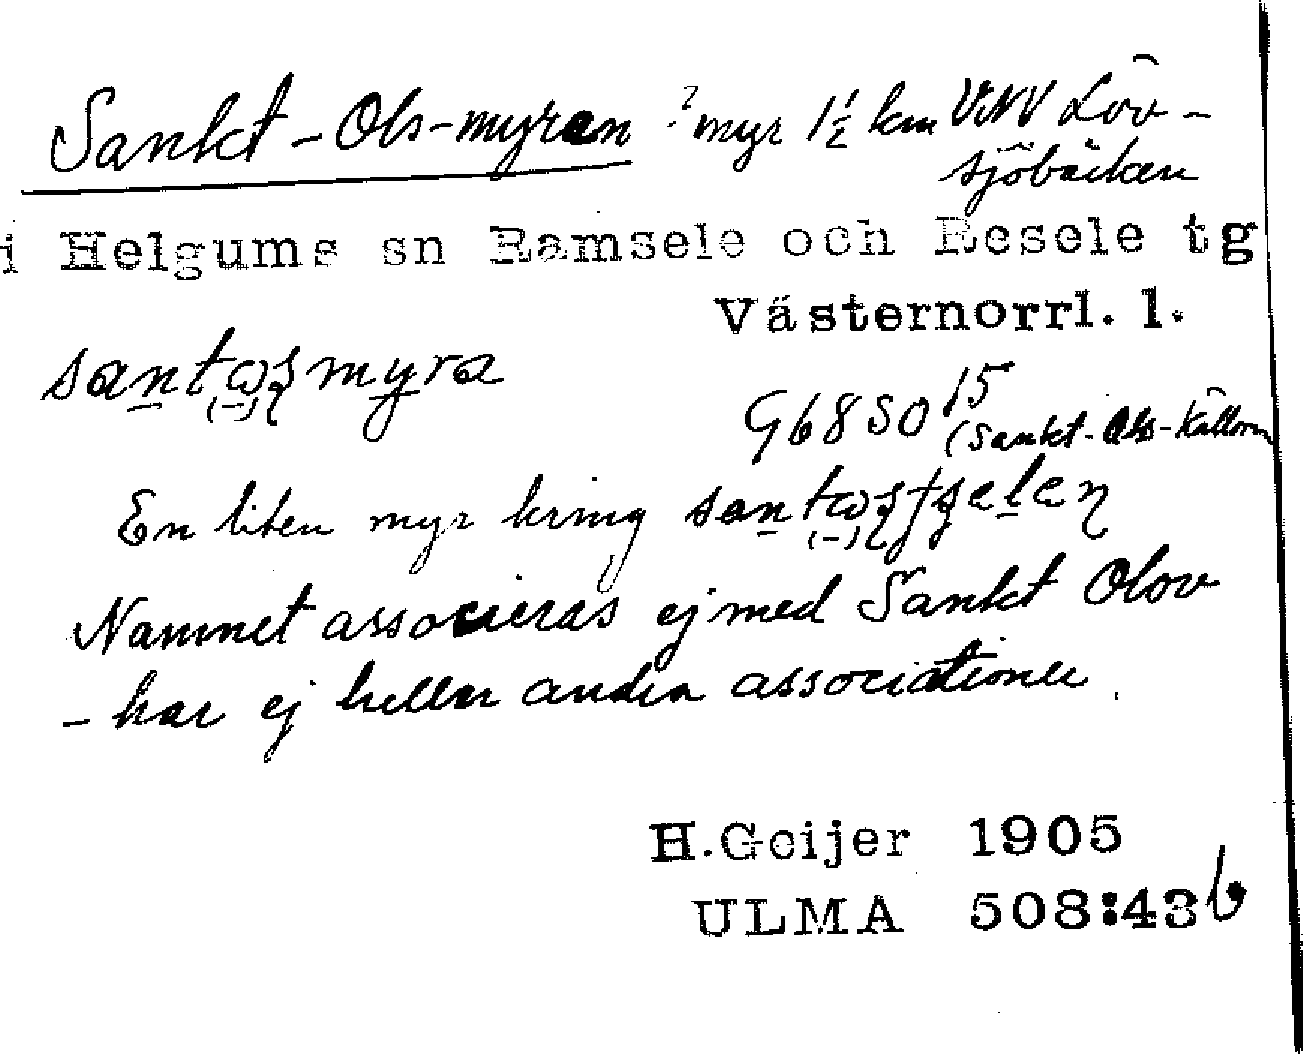 Sankt-Ols-myren ? myr 1½ km VNV Löv-
sjöbäcken
i Helgums sn Ramsele och Resele tg
Västernorrl. l.
santωsmyra
G6850 15
(Sankt-Ols-källorn
En liten myr kring santωstjelen
Namnet associeras ej med Sankt Olov
- har ej heller andra associationer.
H.Geijer 1905
ULMA 508:43 b